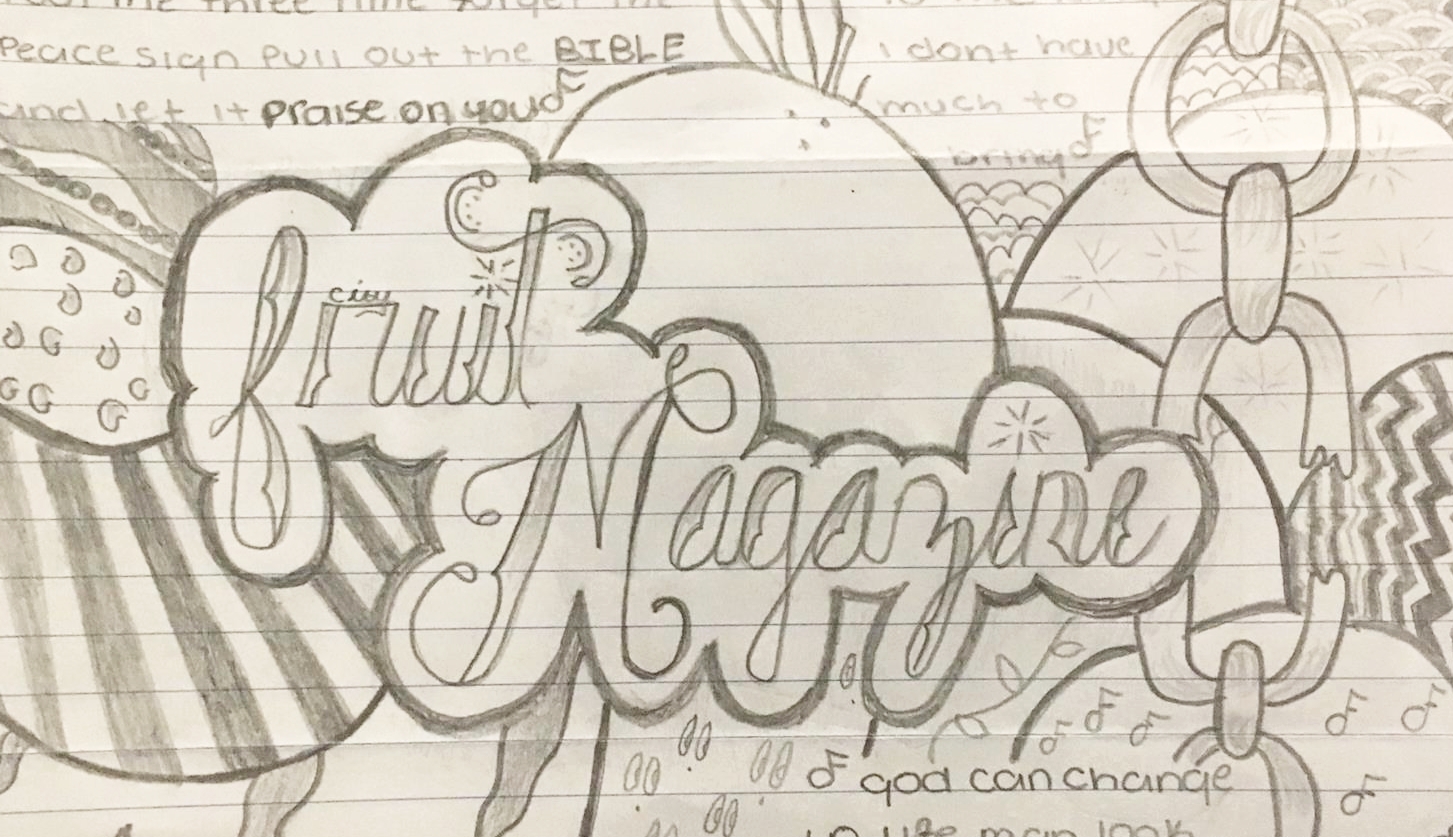 the three time forget the
Peace sign Pull out the BIBLE
and let it praise on you
i dont have
much to
bring
fruit
Magazine
god can change
life man look